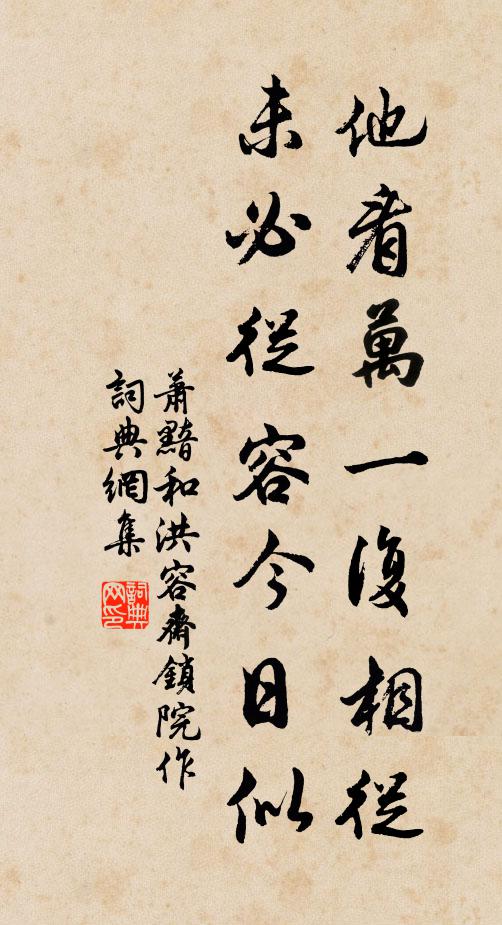 他看萬一復相從
未必從容今日似
蕭黯和洪容齋鎖院作
詞典網集
詞典网印